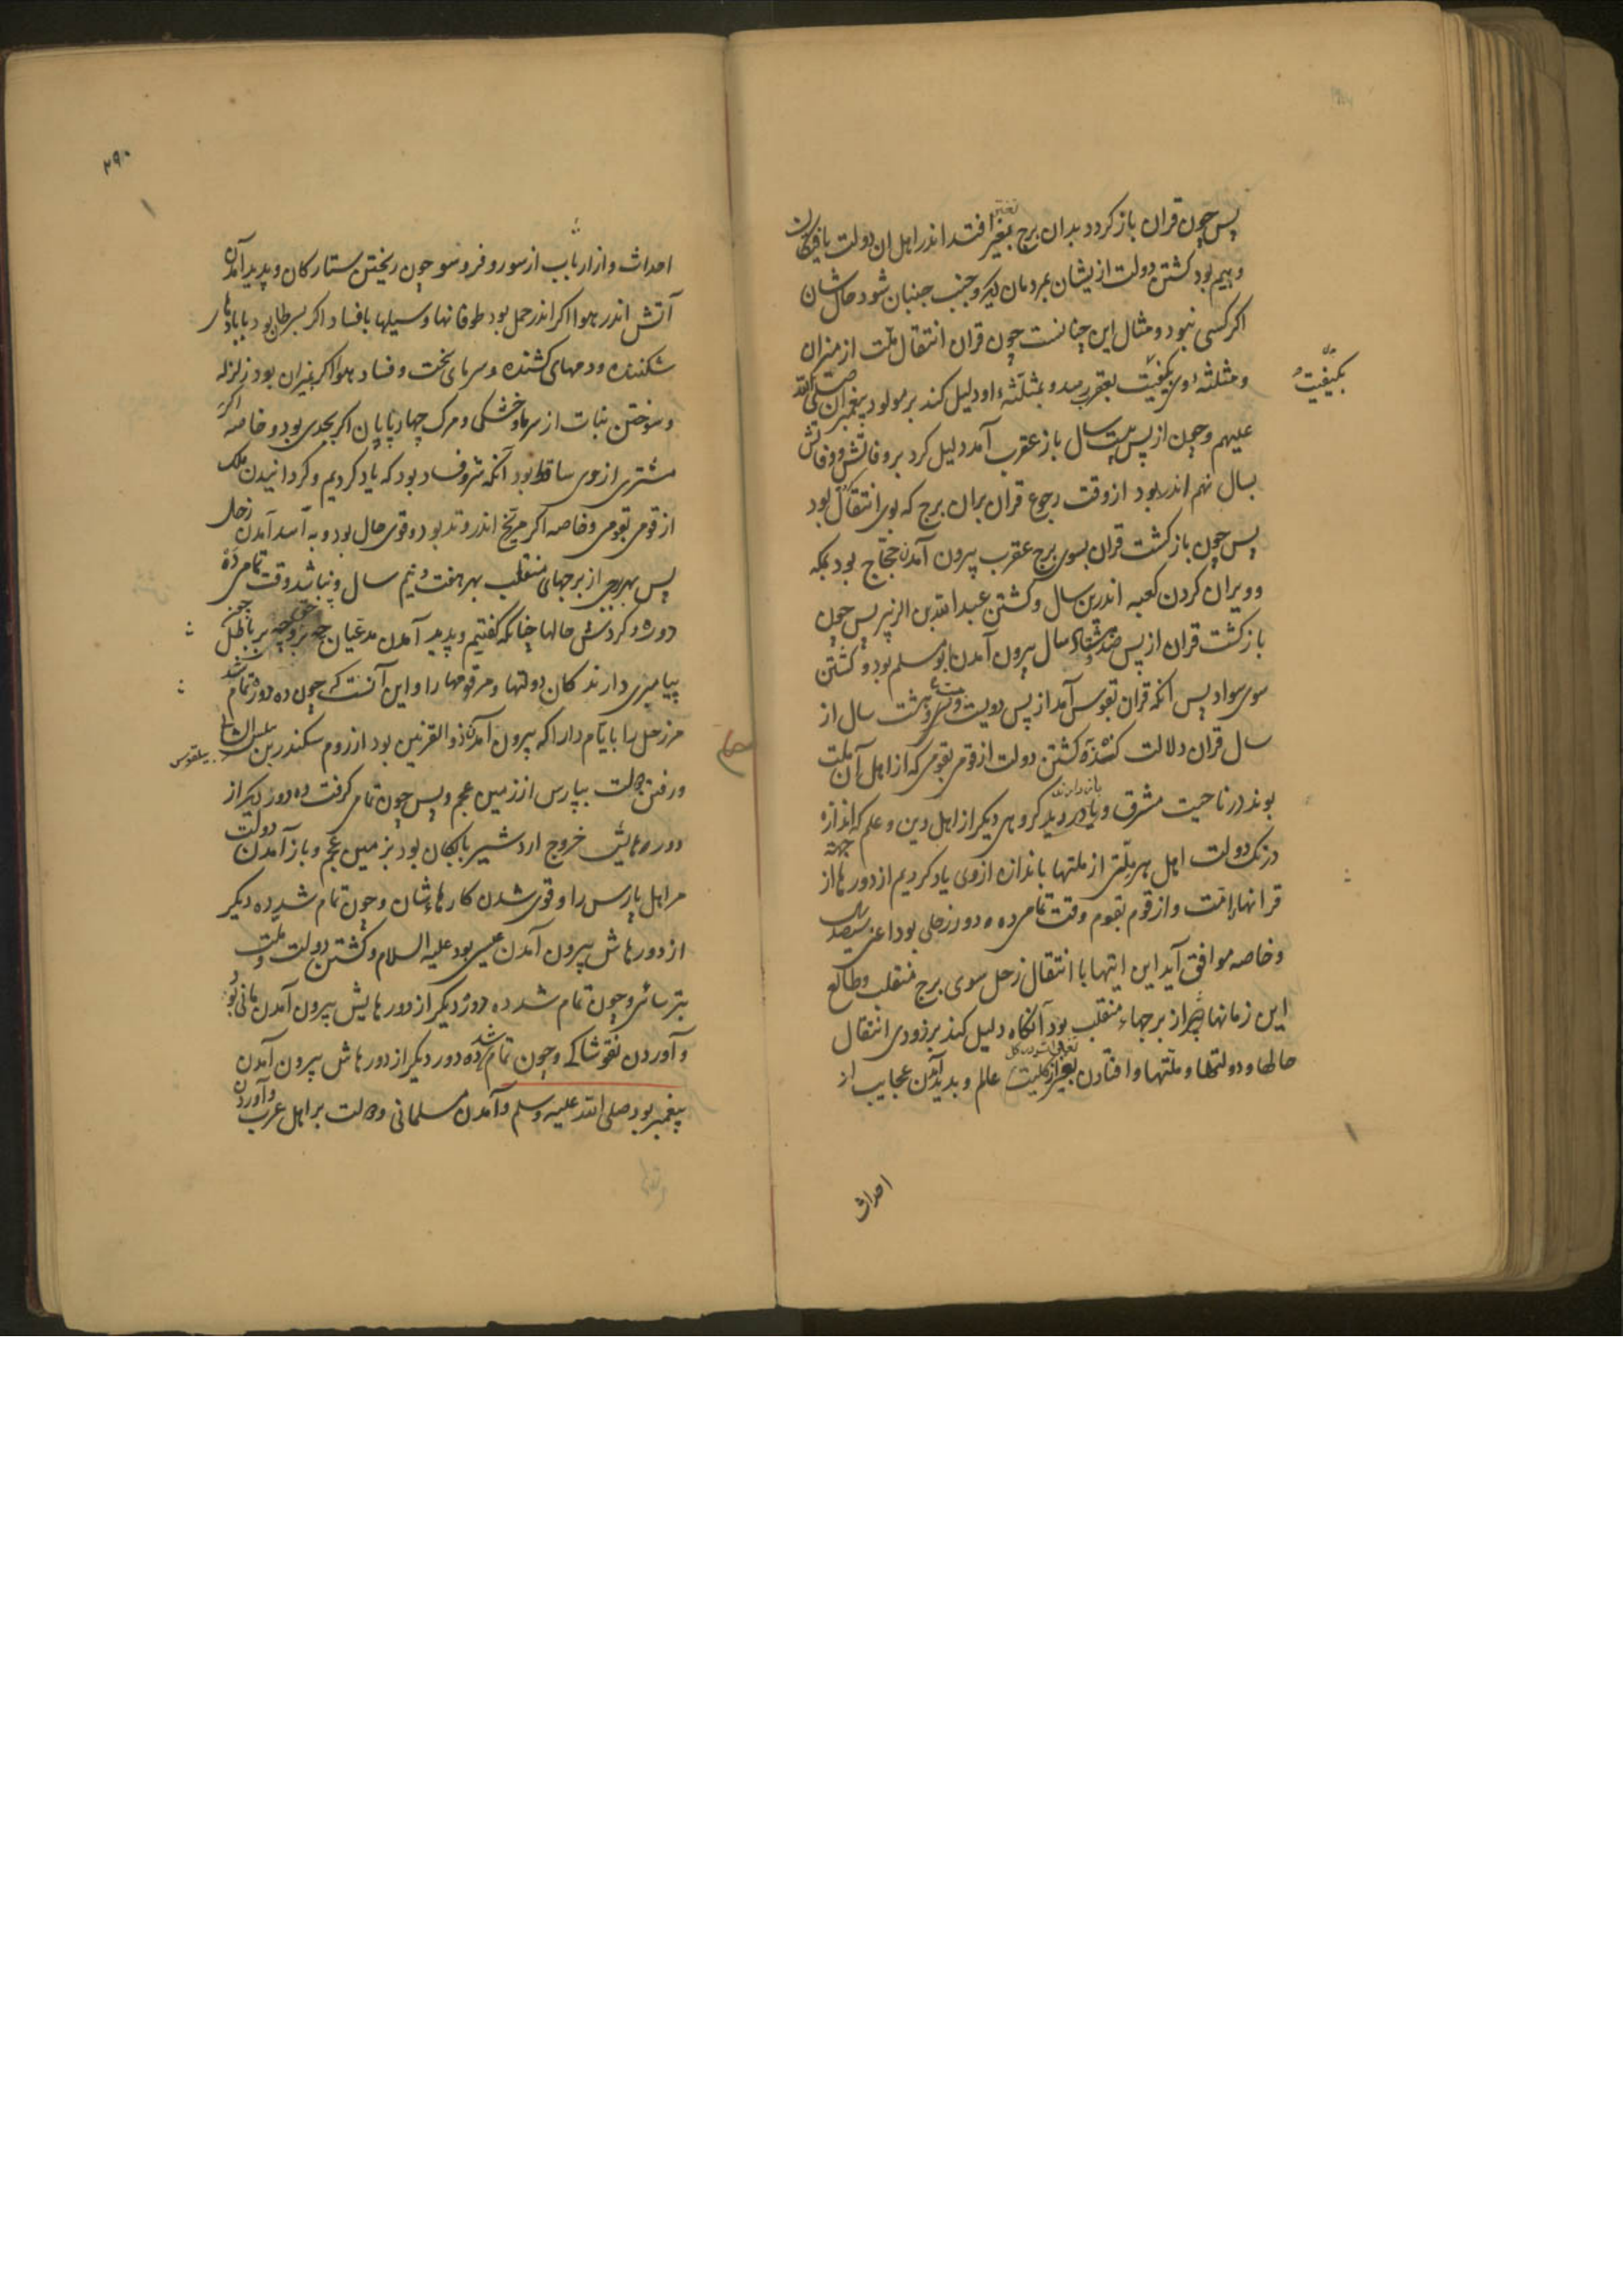 پس چون قران باز کردد بدان برج تغییر افتد اندر اهل ان دولت
و بیم بود کشتن دولت ازیشان بمردمان دیکر و جنب جنبان شود حال شان
اکر کسی نبود و مثال این چنانست چون قران انتقال ملت از میزان
و مثلثهٔ وی بعقرب رسد و بمثلثهٔ او دلیل کند بر مولود پیغمبران صلی الله
بکیفیت
علیهم و چون از پس بیست سال باز عقرب آمد دلیل کرد بر وفاتش و وفاتش
بسال نهم اندر بود از وقت رجوع قران بران برج که بوی انتقال بود
پس چون باز کشت قران بسوی برج عقرب بیرون آمدن حجاج بود بمکه
و ویران کردن کعبه اندرین سال و کشتن عبد الله بن الزبیر پس چون
باز کشت قران از پس سال بیرون آمدن بو مسلم بود و کشتن
سوی سواد پس انکه قران بقوس آمد از پس دویست و هشت سال از
سال قران دلالت کننده کشتن دولت از قومی بقومی که از اهل آن ملت
بوند در ناحیت مشرق و کروهی دیکر از اهل دین و علم که اندازهٔ
درنک دولت اهل هر ملتی از ملتها باندازه ازوی یاد کردیم از دورها از
قرانها را و از قوم بقوم وقت تمامی ده دور زحلی بود اعنی سیصد سال
و خاصه موافق آید این انتها با انتقال زحل سوی برج منقلب و طالع
این زمانها نیز از برجهاء منقلب بود آنکاه دلیل کند بر زودی انتقال
حالها و دولتها و ملتها و افتادن تغییر از کلیت عالم و پدید آمدن عجایب از
احداث
۲۹۰
احداث و از ارباب از سور و فرو سو چون ریختن ستارکان و پدید آمدن
آتش اندر هوا اکر اندر حمل بود طوفانها و سیلها با فساد اکر بسرطان بود بابادهای
شکننده و دمهای کشنده و سرمای سخت و فساد هوا اکر بمیزان بود زلزله
و سوختن نبات از سرما و خشکی و مرک چهارپایان اکر بجدی بود و خاصه اکر
مشتری از وی ساقط بود آنکه شر و فساد بود که یاد کردیم و کردانیدن ملک
از قومی بقومی و خاصه اکر مریخ اندر وتد بود و قوی حال بود و به آسد آمدن زحل
پس بهر برجی از برجهای منقلب بهر هفت و نیم سال و نباشد وقت تمامی ده
دوره و کردش حالها چنانکه کفتیم و پدید آمدن مدعیان چه بر حق و چه بر باطل
پیامبری دارندکان دولتها و مر قومها را و این آنست که چون ده دور تمام شد
مر زحل را بایام دارا که بیرون آمدن ذو القرنین بود از روم سکندر بن
بیلقوس
و رفتن دولت بپارس از زمین عجم و پس چون تمامی کرفت ده دور دیکر از
دورهایش خروج اردشیر بابکان بود بزمین عجم و باز آمدن دولت
مر اهل پارس را و قوی شدن کارهاء شان و چون تمام شد ده دیکر
از دورهاش بیرون آمدن عیسی بود علیه السلام و کشتن دولت و ملت
بترسائی و چون تمام شد ده دور دیکر از دورهایش بیرون آمدن مانی بود
و آوردن نقوشاکی و چون تمام شد ده دور دیکر از دورهاش بیرون آمدن
پیغمبر بود صلی الله علیه وسلم و آمدن مسلمانی و دولت بر اهل عرب و آوردن